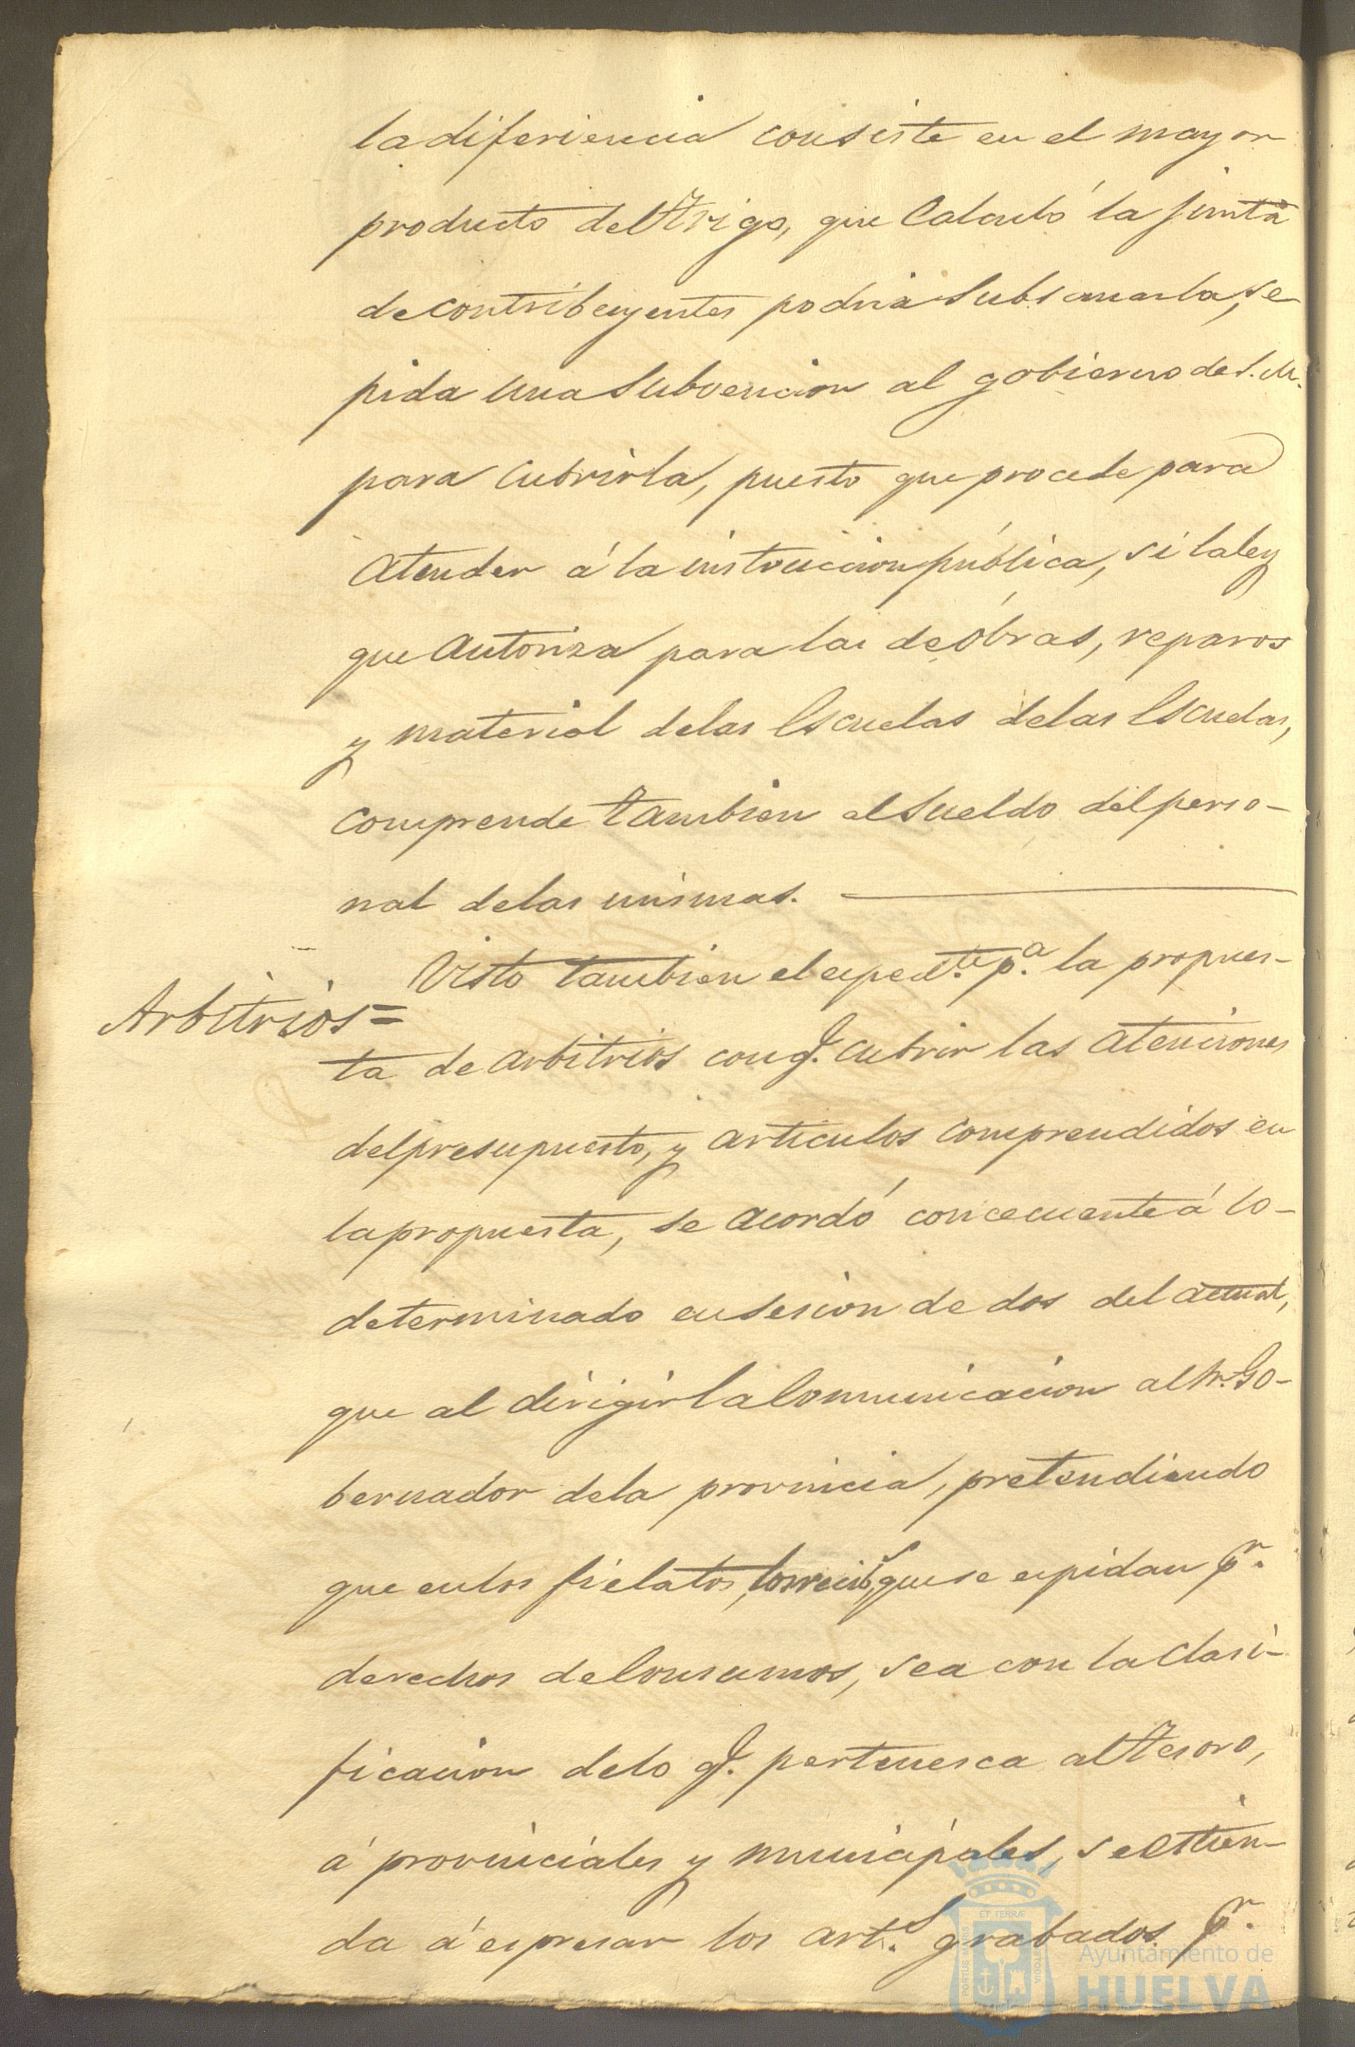 la diferiencia consiste en el mayor
producto del trigo, que Calculó la junta
de contribuyentes podria Subsanarla, se
pida una Subvencion al gobierno de S. M.
para Cubrirla, puesto que procede para
Atender á la instruccion pública, si la ley
que Autoriza para las de óbras, reparos
y material de las Escuelas de las Escuelas,
comprende tambien el Sueldo del perso-
nal de las mismas.
Arbitrios =
Visto tambien el espedte. pa. la propues-
ta de arbitrios con q. cubrir las atenciones
del presupuesto, y articulos comprendidos en
la propuesta, se acordó concecuente á lo-
determinado en sesion de dos del actual,
que al dirigir la Comunicacion al Sr. Go-
bernador de la provincia, pretendiendo
que en los fielatos, los recibs, que se espidan pr.
derechos de Consumos, sea con la Clasi-
ficacion de lo q. pertenesca al tesoro,
á provinciales y municipales, se estien-
da á espresar los arts. grabados pr.
Ayuntamiento de
HUELVA